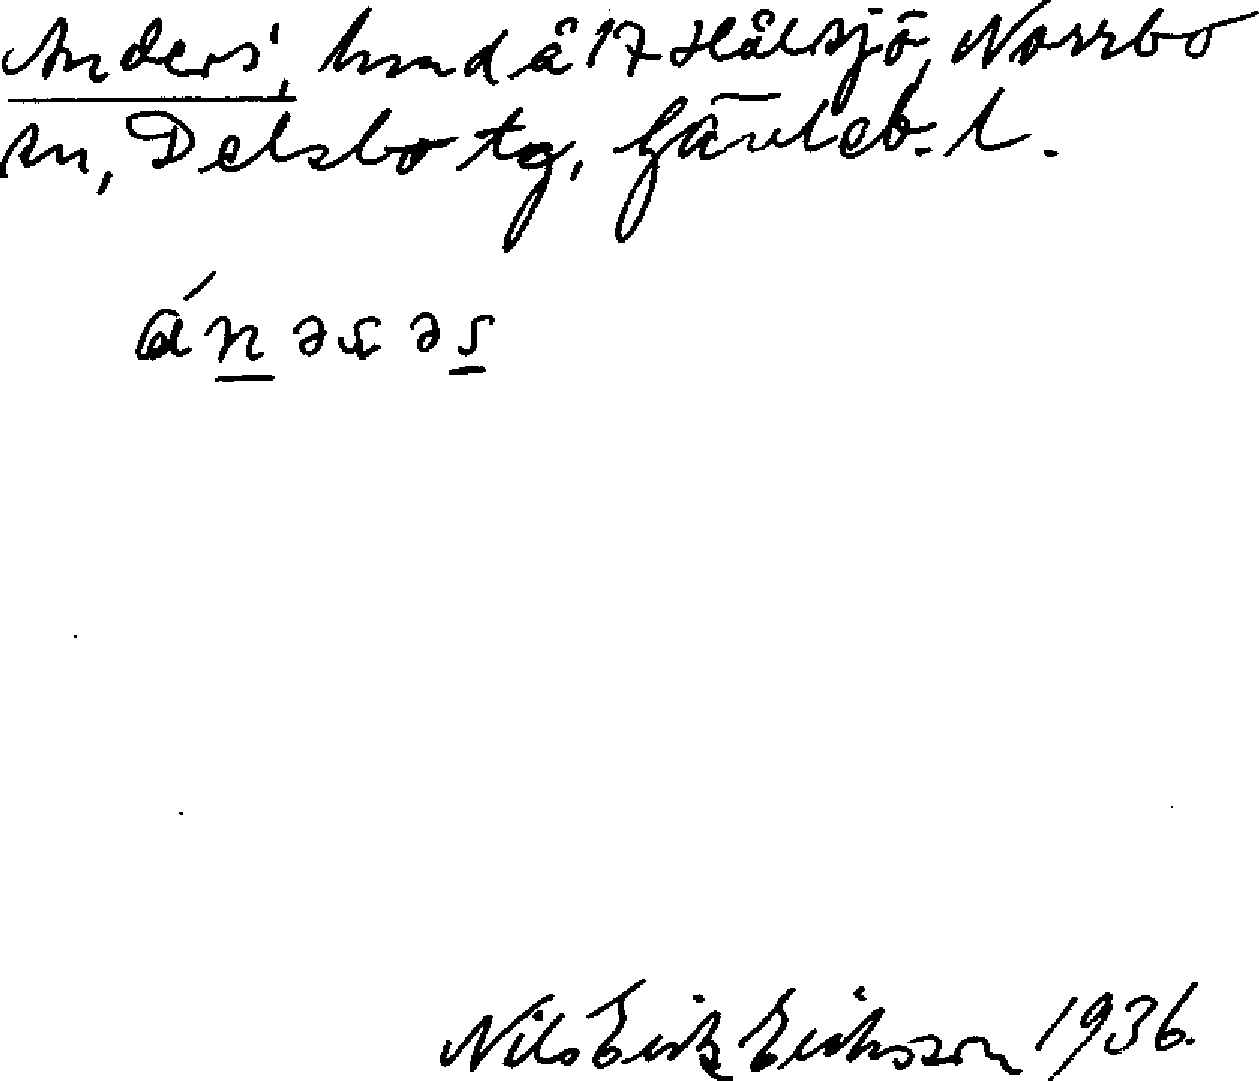 Anders', hmd å 17 Hålsjö, Norrbo
sn, Delsbo tg, Gävleb. l.
Nils Erik Eriksson 1936.